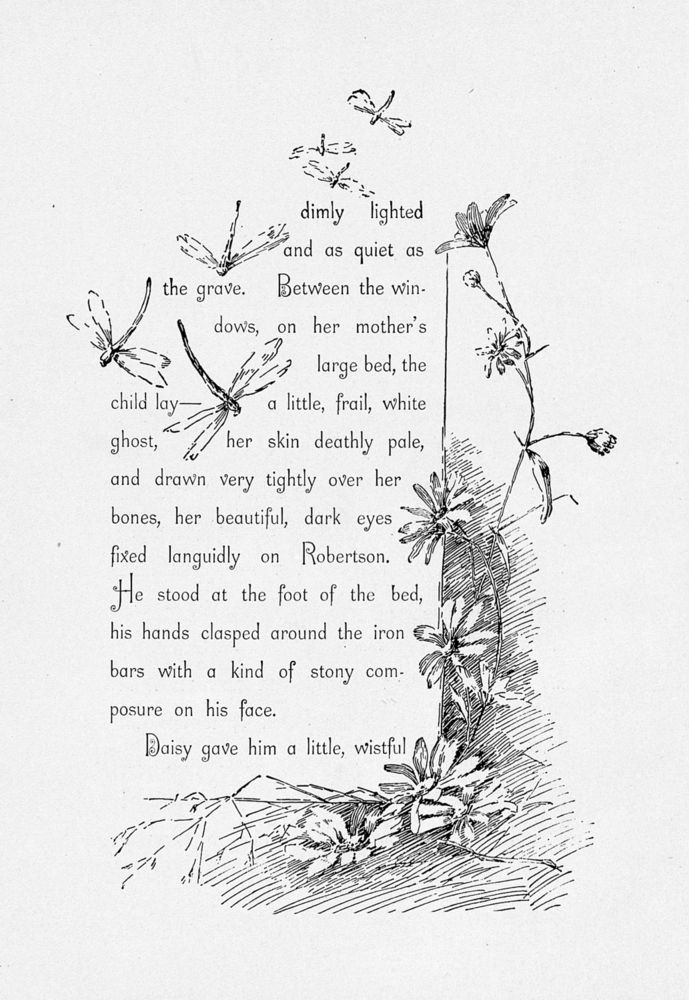 dimly lighted
and as quiet as
the grave. Between the win-
dows, on her mother's
large bed, the
child lay— a little, frail, white
ghost, her skin deathly pale,
and drawn very tightly over her
bones, her beautiful, dark eyes
fixed languidly on Robertson.
He stood at the foot of the bed,
his hands clasped around the iron
bars with a kind of stony com-
posure on his face.
Daisy gave him a little, wistful